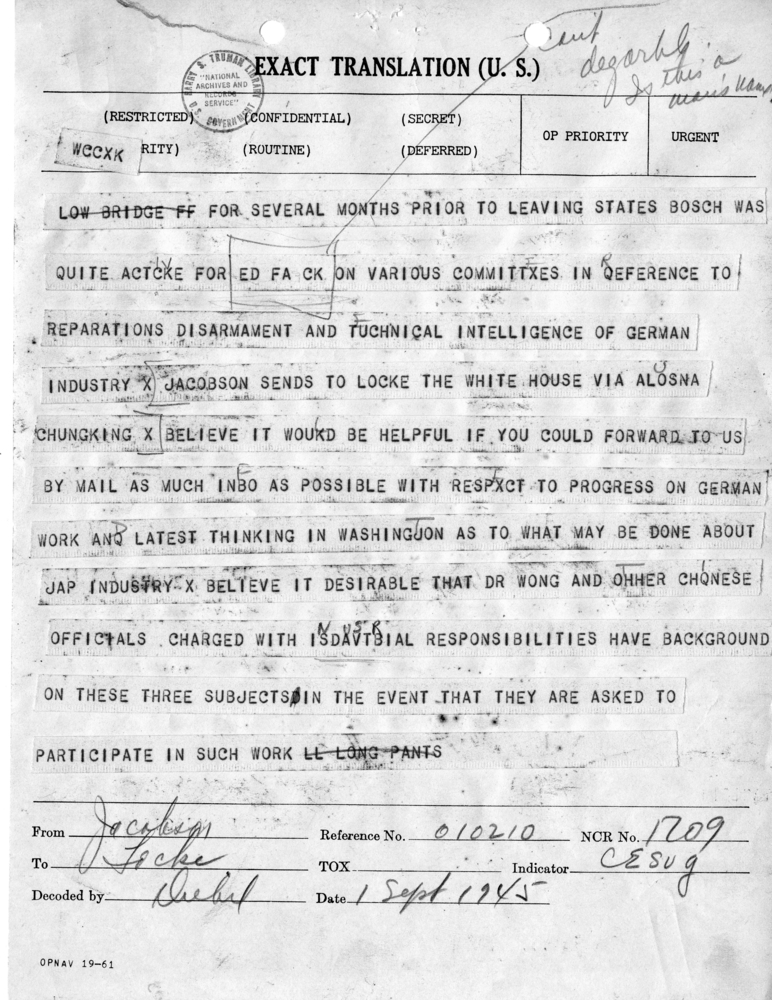 Can't
degarble.
Is this a
man's name
EXACT TRANSLATION (U. S.)
HARRY S. TRUMAN LIBRARY
"NATIONAL
ARCHIVES AND
RECORDS
SERVICE"
U.S. GOVERNMENT
(RESTRICTED) (CONFIDENTIAL) (SECRET)
OP PRIORITY URGENT
WCCXK RITY) (ROUTINE) (DEFERRED)
LOW BRIDGE FF FOR SEVERAL MONTHS PRIOR TO LEAVING STATES BOSCH WAS
QUITE ACTCKE FOR ED FA CK ON VARIOUS COMMITTXES IN QEFERENCE TO
REPARATIONS DISARMAMENT AND TUCHNICAL INTELLIGENCE OF GERMAN
INDUSTRY X JACOBSON SENDS TO LOCKE THE WHITE HOUSE VIA ALOSNA
CHUNGKING X BELIEVE IT WOUKD BE HELPFUL IF YOU COULD FORWARD TO US
BY MAIL AS MUCH INBO AS POSSIBLE WITH RESPXCT TO PROGRESS ON GERMAN
WORK ANQ LATEST THINKING IN WASHINGJON AS TO WHAT MAY BE DONE ABOUT
JAP INDUSTRY X BELIEVE IT DESIRABLE THAT DR WONG AND OHHER CHQNESE
OFFICIALS CHARGED WITH ISDAVTBIAL RESPONSIBILITIES HAVE BACKGROUND
ON THESE THREE SUBJECTS IN THE EVENT THAT THEY ARE ASKED TO
PARTICIPATE IN SUCH WORK LL LONG PANTS
From Jacobson Reference No. 010210 NCR No. 1709
To Locke TOX Indicator CESUG
Decoded by Date 1 Sept 1945
OPNAV 19-61